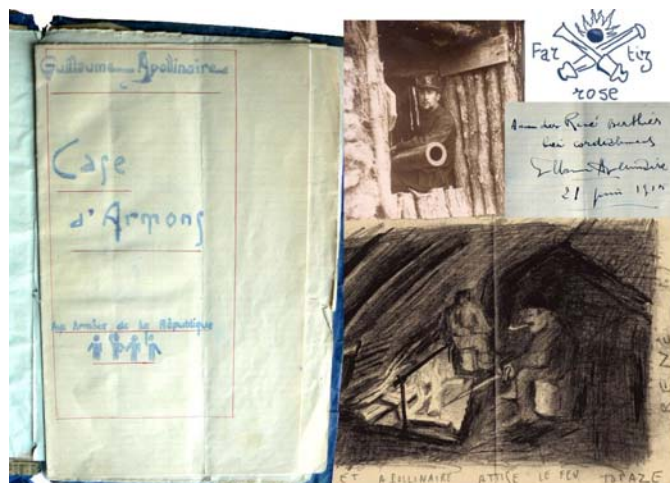 Guillaume Apollinaire
Case
d'Armons
Aux Armées de la République
Far tiz
rose
René Berthier
Guillaume Apollinaire
21 juin 1915
ET APOLLINAIRE ATTISE LE FEU TOPAZE